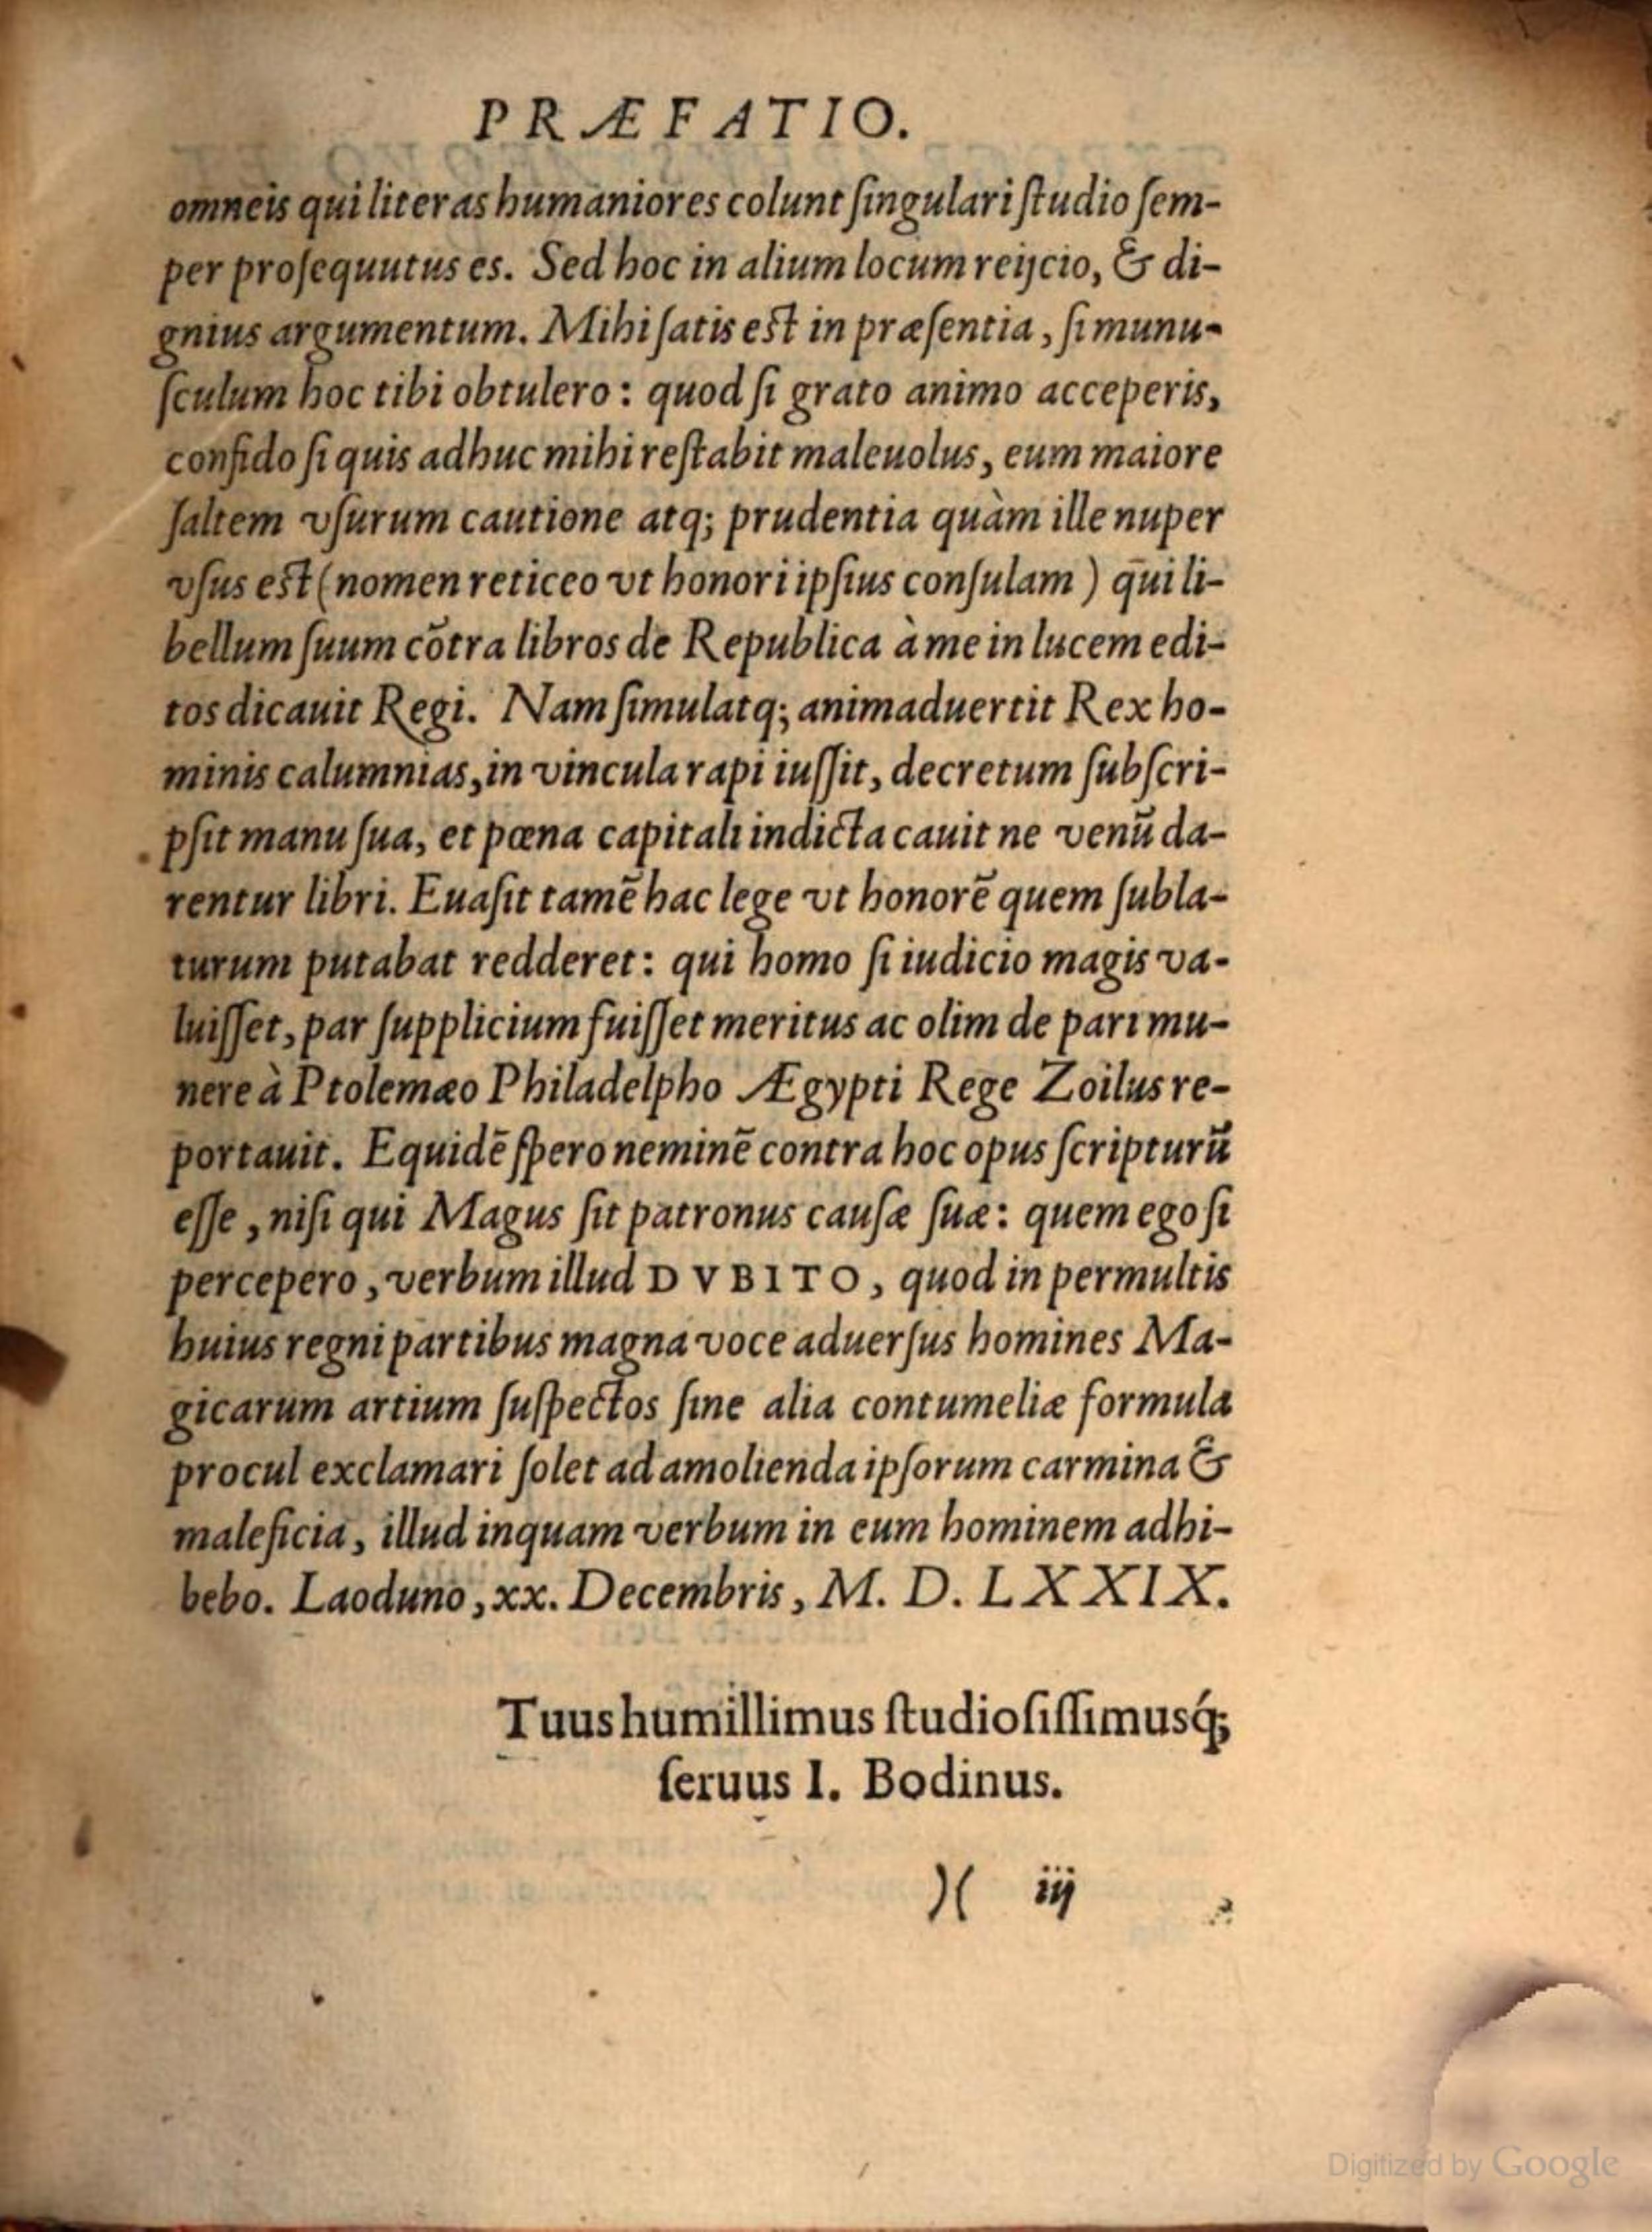 PRÆFATIO.
omneis qui literas humaniores colunt ſingulari ſtudio ſem-
per proſequutus es. Sed hoc in alium locum reijcio, & di-
gnius argumentum. Mihi ſatis eſt in præſentia, ſi munu-
ſculum hoc tibi obtulero: quod ſi grato animo acceperis,
confido ſi quis adhuc mihi reſtabit maleuolus, eum maiore
ſaltem vſurum cautione atq; prudentia quàm ille nuper
vſus eſt (nomen reticeo vt honori ipſius conſulam) qui li-
bellum ſuum cõtra libros de Republica à me in lucem edi-
tos dicauit Regi. Nam ſimulatq; animaduertit Rex ho-
minis calumnias, in vincula rapi iuſſit, decretum ſubſcri-
pſit manu ſua, et pœna capitali indicta cauit ne venũ da-
rentur libri. Euaſit tamẽ hac lege vt honorẽ quem ſubla-
turum putabat redderet: qui homo ſi iudicio magis va-
luiſſet, par ſupplicium fuiſſet meritus ac olim de pari mu-
nere à Ptolemæo Philadelpho Ægypti Rege Zoilus re-
portauit. Equidẽ ſpero neminẽ contra hoc opus ſcripturũ
eſſe, niſi qui Magus ſit patronus cauſæ ſuæ: quem ego ſi
percepero, verbum illud DVBITO, quod in permultis
huius regni partibus magna voce aduerſus homines Ma-
gicarum artium ſuſpectos ſine alia contumeliæ formula
procul exclamari ſolet ad amolienda ipſorum carmina &
maleficia, illud inquam verbum in eum hominem adhi-
bebo. Laoduno, xx. Decembris, M. D. LXXIX.
Tuus humillimus ſtudioſiſſimusq́;
ſeruus I. Bodinus.
)( iij
Digitized by Google